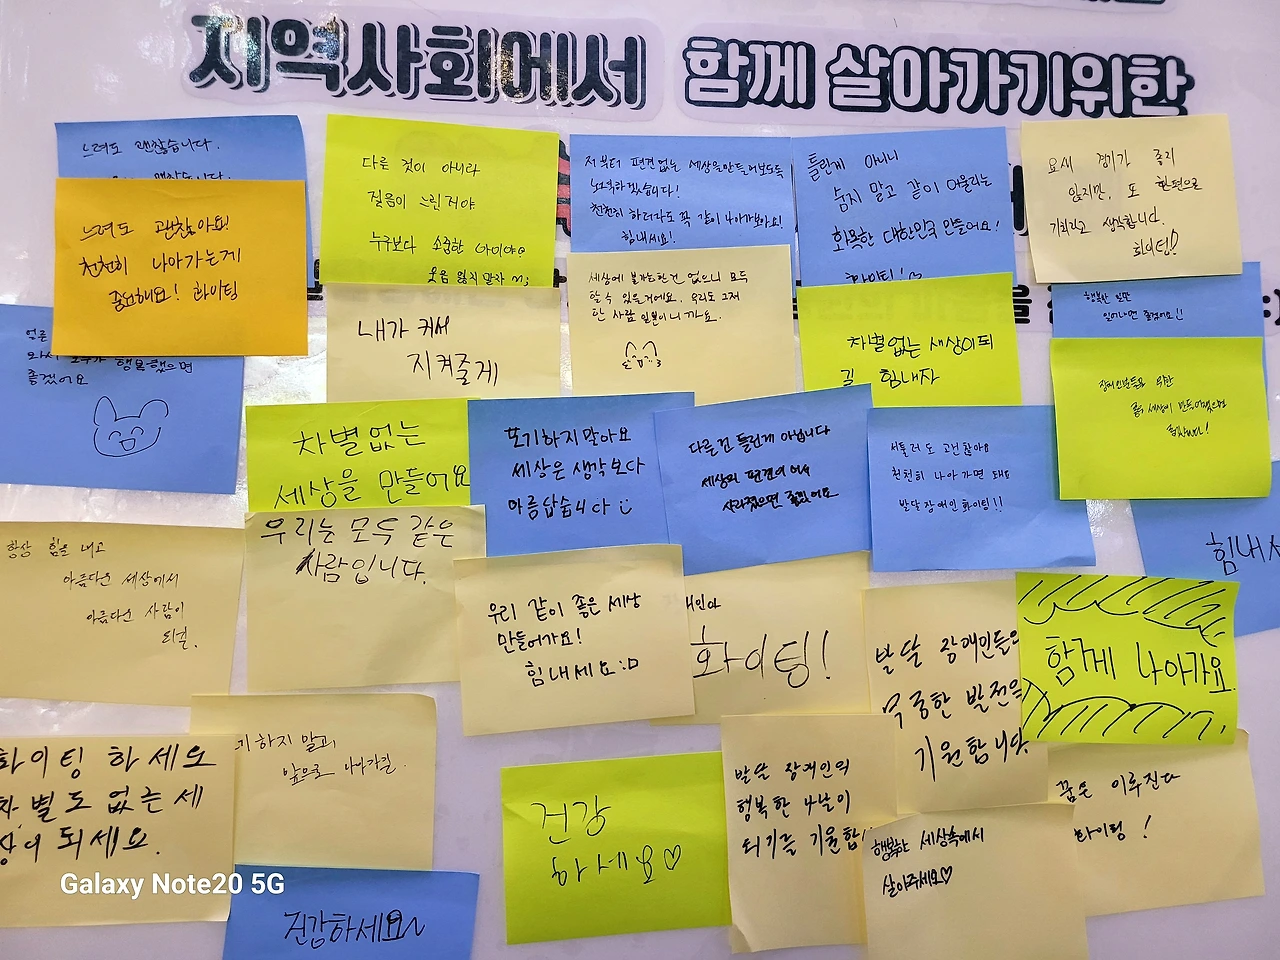 지역사회에서 함께 살아가기위한
느려도 괜찮습니다.
느려도 괜찮아요!
천천히 나아가는게
중요해요! 화이팅
다른 것이 아니라
걸음이 느린거야
누구보다 소중한 아이야?
웃음 잃지말자
저부터 편견없는 세상을만들어보도록
노력하겠습니다!
천천히 하더라도 꼭 같이 나아가보아요!
힘내세요!
틀린게 아니니
숨지 말고 같이 어울리는
화목한 대한민국 만들어요!
화이팅!
요새 경기가 좋지
않지만, 또 한편으로
기회라고 생각합니다.
화이팅!
와서 모두가 행복했으면
좋겠어요
내가 커서
지켜줄게
세상에 불가능한건 없으니 모두
할 수 있을거에요. 우리도 그저
한 사람 일뿐이니까요.
차별없는 세상이되
길 힘내자
행복한 일만
일어나면 좋겠어요!!
장애인분들을 위한
좋은 세상이 만들어졌으면
차별없는
세상을 만들어요
포기하지말아요
세상은 생각보다
아름답습니다
다른건 틀린게 아닙니다
세상의 편견이 어서
사라졌으면 좋겠어요
서툴러도 괜찮아요
천천히 나아가면 돼요
발달장애인 화이팅!!
힘내
항상 힘을 내고
아름다운 세상에서
아름다운 사람이
되길.
우리는 모두 같은
사람입니다.
우리 같이 좋은 세상
만들어가요!
힘내세요:D
화이팅!
발달 장애인들의
무궁한 발전을
기원합니다
함께 나아가요.
화이팅 하세요
차별도 없는 세
상이 되세요.
기하지 말고,
앞으로 나아가길.
건강
하세요♡
발달 장애인의
행복한 나날이
되기를 기원합
행복한 세상속에서
살아주세요♡
꿈은 이루진다
화이팅!
건강하세요~
Galaxy Note20 5G